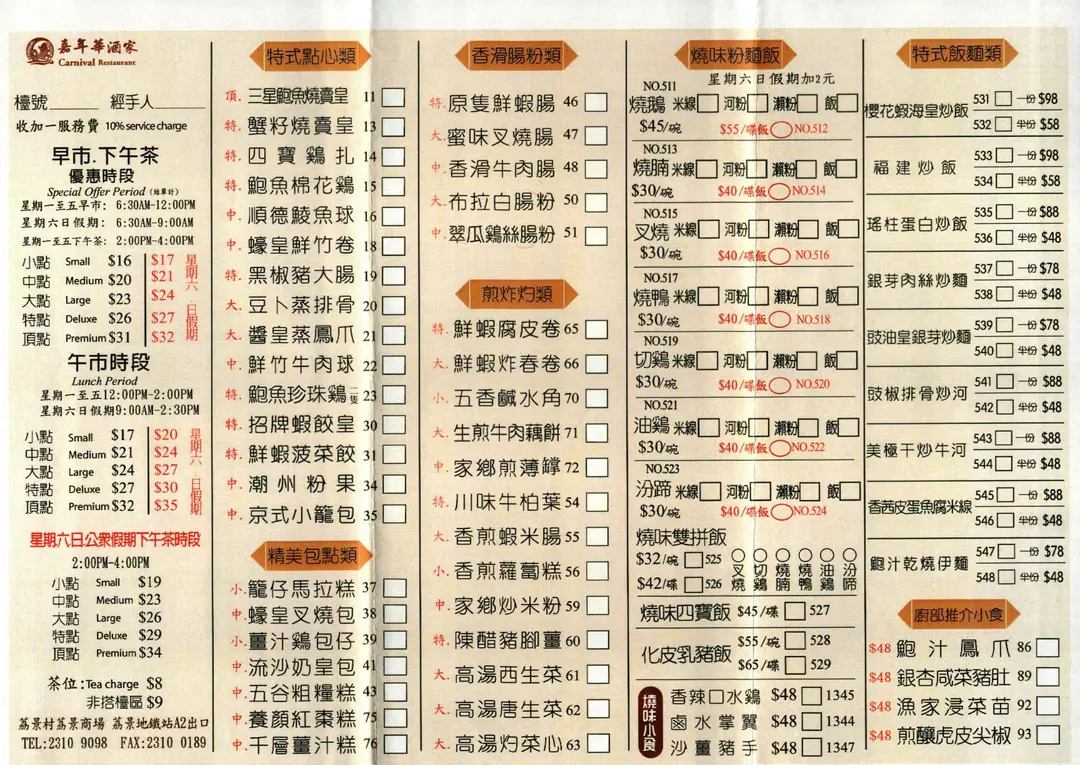 嘉年華酒家
Carnival Restaurant
檯號______ 經手人______
收加一服務費 10% service charge
早市.下午茶
優惠時段
Special Offer Period (結單計)
星期一至五早市: 6:30AM-12:00PM
星期六日假期: 6:30AM-9:00AM
星期一至五下午茶: 2:00PM-4:00PM
小點 Small $16 $17
中點 Medium $20 $21
大點 Large $23 $24
特點 Deluxe $26 $27
頂點 Premium $31 $32
星期六 日假期
午市時段
Lunch Period
星期一至五12:00PM-2:00PM
星期六日假期9:00AM-2:30PM
小點 Small $17 $20
中點 Medium $21 $24
大點 Large $24 $27
特點 Deluxe $27 $30
頂點 Premium $32 $35
星期六 日假期
星期六日公眾假期下午茶時段
2:00PM-4:00PM
小點 Small $19
中點 Medium $23
大點 Large $26
特點 Deluxe $29
頂點 Premium $34
茶位:Tea charge $8
非搭檯區 $9
荔景村荔景商場 荔景地鐵站A2出口
TEL:2310 9098 FAX:2310 0189
特式點心類
頂. 三星鮑魚燒賣皇 11
特. 蟹籽燒賣皇 13
特. 四寶鷄扎 14
特. 鮑魚棉花鷄 15
中. 順德鯪魚球 16
中. 蠔皇鮮竹卷 18
特. 黑椒豬大腸 19
大. 豆卜蒸排骨 20
大. 醬皇蒸鳳爪 21
中. 鮮竹牛肉球 22
特. 鮑魚珍珠鷄 二隻 23
特. 招牌蝦餃皇 30
特. 鮮蝦菠菜餃 31
中. 潮州粉果 34
中. 京式小籠包 35
精美包點類
小. 籠仔馬拉糕 37
中. 蠔皇叉燒包 38
小. 薑汁鷄包仔 39
中. 流沙奶皇包 41
中. 五谷粗糧糕 43
中. 養顏紅棗糕 75
中. 千層薑汁糕 76
香滑腸粉類
特. 原隻鮮蝦腸 46
大. 蜜味叉燒腸 47
中. 香滑牛肉腸 48
大. 布拉白腸粉 50
中. 翠瓜鷄絲腸粉 51
煎炸灼類
特. 鮮蝦腐皮卷 65
大. 鮮蝦炸春卷 66
小. 五香鹹水角 70
大. 生煎牛肉藕餅 71
中. 家鄉煎薄罉 72
特. 川味牛柏葉 54
大. 香煎蝦米腸 55
小. 香煎蘿蔔糕 56
中. 家鄉炒米粉 59
特. 陳醋豬腳薑 60
大. 高湯西生菜 61
大. 高湯唐生菜 62
大. 高湯灼菜心 63
燒味粉麵飯
星期六日假期加2元
NO.511
燒鵝 米線 河粉 瀨粉 飯
$45/碗 $55/碟飯 NO.512
NO.513
燒腩 米線 河粉 瀨粉 飯
$30/碗 $40/碟飯 NO.514
NO.515
叉燒 米線 河粉 瀨粉 飯
$30/碗 $40/碟飯 NO.516
NO.517
燒鴨 米線 河粉 瀨粉 飯
$30/碗 $40/碟飯 NO.518
NO.519
切鷄 米線 河粉 瀨粉 飯
$30/碗 $40/碟飯 NO.520
NO.521
油鷄 米線 河粉 瀨粉 飯
$30/碗 $40/碟飯 NO.522
NO.523
汾蹄 米線 河粉 瀨粉 飯
$30/碗 $40/碟飯 NO.524
燒味雙拼飯
$32/碗 525
$42/碟 526
叉燒 切鷄 燒腩 燒鴨 油鷄 汾蹄
燒味四寶飯 $45/碟 527
化皮乳豬飯 $55/碗 528
$65/碟 529
燒味小食
香辣口水鷄 $48 1345
鹵水掌翼 $48 1344
沙薑豬手 $48 1347
特式飯麵類
櫻花蝦海皇炒飯 531 一份 $98
532 半份 $58
福建炒飯 533 一份 $98
534 半份 $58
瑤柱蛋白炒飯 535 一份 $88
536 半份 $48
銀芽肉絲炒麵 537 一份 $78
538 半份 $48
豉油皇銀芽炒麵 539 一份 $78
540 半份 $48
豉椒排骨炒河 541 一份 $88
542 半份 $48
美極干炒牛河 543 一份 $88
544 半份 $48
香茜皮蛋魚腐米線 545 一份 $88
546 半份 $48
鮑汁乾燒伊麵 547 一份 $78
548 半份 $48
廚部推介小食
$48 鮑汁鳳爪 86
$48 銀杏咸菜豬肚 89
$48 漁家浸菜苗 92
$48 煎釀虎皮尖椒 93